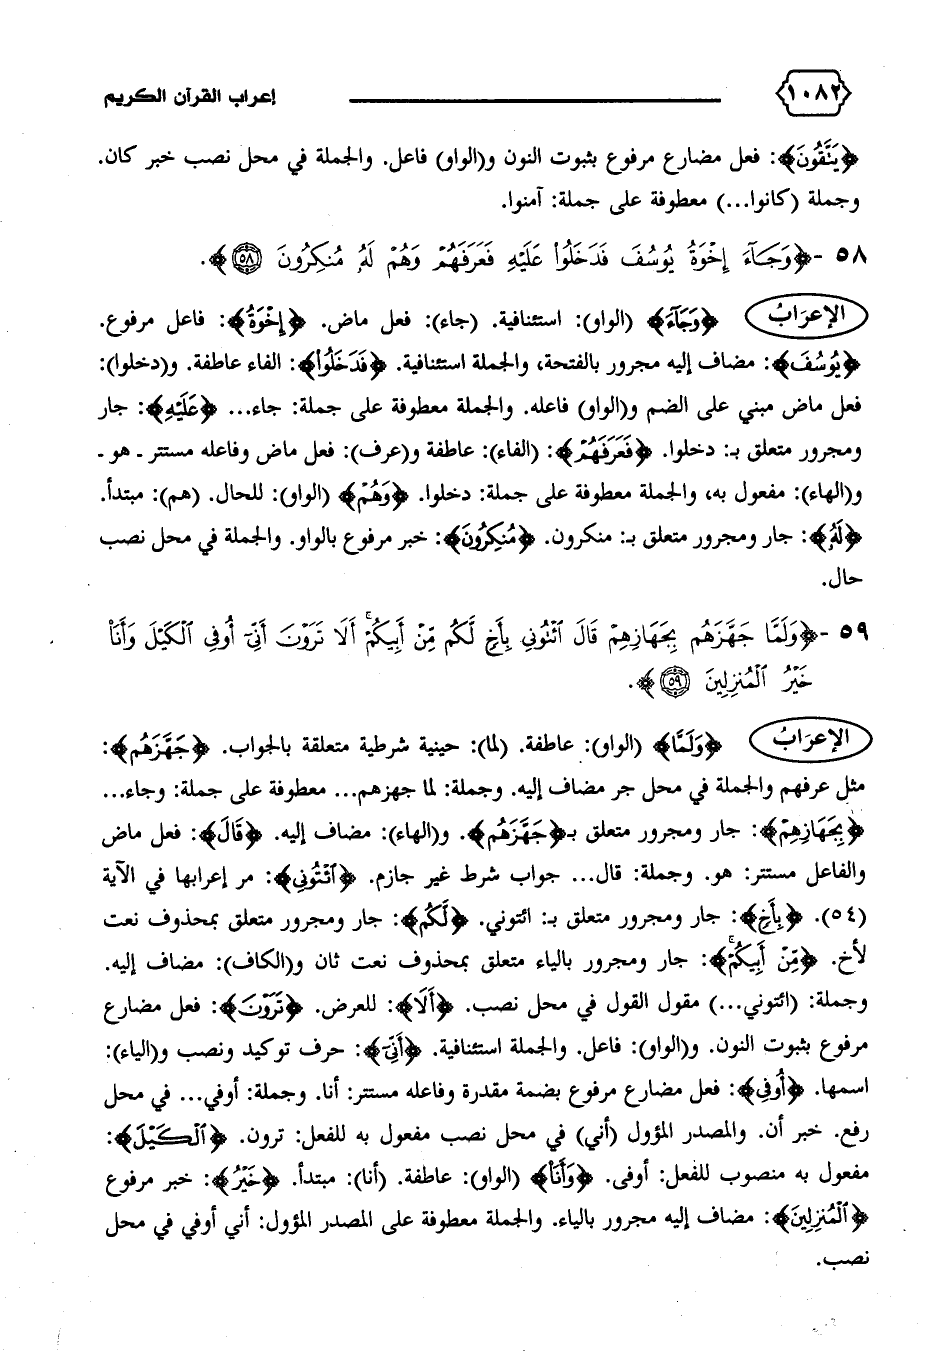 ١٠٨٢ إعراب القرآن الكريم
﴿يَتَّقُونَ﴾: فعل مضارع مرفوع بثبوت النون و(الواو) فاعل. والجملة في محل نصب خبر كان.
وجملة (كانوا...) معطوفة على جملة: آمنوا.
٥٨ -﴿وَجَآءَ إِخْوَةُ يُوسُفَ فَدَخَلُوا۟ عَلَيْهِ فَعَرَفَهُمْ وَهُمْ لَهُۥ مُنكِرُونَ ٥٨﴾.
الإعرَابُ ﴿وَجَآءَ﴾ (الواو): استئنافية. (جاء): فعل ماض. ﴿إِخْوَةُ﴾: فاعل مرفوع.
﴿يُوسُفَ﴾: مضاف إليه مجرور بالفتحة، والجملة استئنافية. ﴿فَدَخَلُوا۟﴾: الفاء عاطفة. و(دخلوا):
فعل ماض مبني على الضم و(الواو) فاعله. والجملة معطوفة على جملة: جاء... ﴿عَلَيْهِ﴾: جار
ومجرور متعلق بـ: دخلوا. ﴿فَعَرَفَهُمْ﴾: (الفاء): عاطفة و(عرف): فعل ماض وفاعله مستتر ـ هو ـ
و(الهاء): مفعول به، والجملة معطوفة على جملة: دخلوا. ﴿وَهُمْ﴾ (الواو): للحال. (هم): مبتدأ.
﴿لَهُۥ﴾: جار ومجرور متعلق بـ: منكرون. ﴿مُنكِرُونَ﴾: خبر مرفوع بالواو. والجملة في محل نصب
حال.
٥٩ -﴿وَلَمَّا جَهَّزَهُم بِجَهَازِهِمْ قَالَ ٱئْتُونِى بِأَخٍ لَّكُم مِّنْ أَبِيكُمْ ۚ أَلَا تَرَوْنَ أَنِّىٓ أُوفِى ٱلْكَيْلَ وَأَنَا۠
خَيْرُ ٱلْمُنزِلِينَ ٥٩﴾.
الإعرَابُ ﴿وَلَمَّا﴾ (الواو): عاطفة. (لما): حينية شرطية متعلقة بالجواب. ﴿جَهَّزَهُم﴾:
مثل عرفهم والجملة في محل جر مضاف إليه. وجملة: لما جهزهم... معطوفة على جملة: وجاء...
﴿بِجَهَازِهِمْ﴾: جار ومجرور متعلق بـ﴿جَهَّزَهُم﴾. و(الهاء): مضاف إليه. ﴿قَالَ﴾: فعل ماض
والفاعل مستتر: هو. وجملة: قال... جواب شرط غير جازم. ﴿ٱئْتُونِى﴾: مر إعرابها في الآية
(٥٤). ﴿بِأَخٍ﴾: جار ومجرور متعلق بـ: ائتوني. ﴿لَّكُم﴾: جار ومجرور متعلق بمحذوف نعت
لأخ. ﴿مِّنْ أَبِيكُمْ ۚ﴾: جار ومجرور بالياء متعلق بمحذوف نعت ثان و(الكاف): مضاف إليه.
وجملة: (ائتوني...) مقول القول في محل نصب. ﴿أَلَا﴾: للعرض. ﴿تَرَوْنَ﴾: فعل مضارع
مرفوع بثبوت النون. و(الواو): فاعل. والجملة استئنافية. ﴿أَنِّىٓ﴾: حرف توكيد ونصب و(الياء):
اسمها. ﴿أُوفِى﴾: فعل مضارع مرفوع بضمة مقدرة وفاعله مستتر: أنا. وجملة: أوفي... في محل
رفع. خبر أن. والمصدر المؤول (أني) في محل نصب مفعول به للفعل: ترون. ﴿ٱلْكَيْلَ﴾:
مفعول به منصوب للفعل: أوفى. ﴿وَأَنَا۠﴾ (الواو): عاطفة. (أنا): مبتدأ. ﴿خَيْرُ﴾: خبر مرفوع
﴿ٱلْمُنزِلِينَ﴾: مضاف إليه مجرور بالياء. والجملة معطوفة على المصدر المؤول: أني أوفي في محل
نصب.